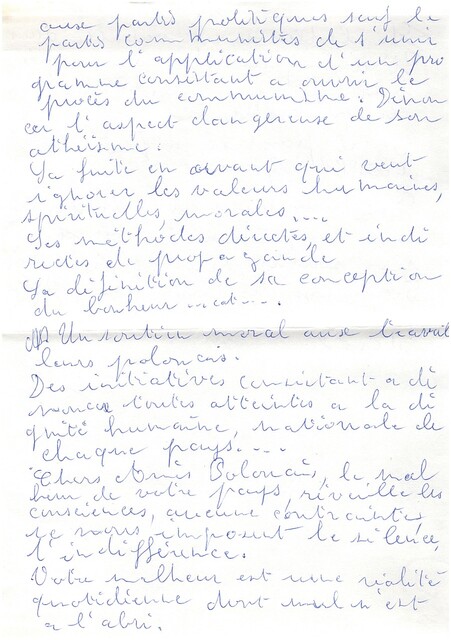 aux partis politiques sauf le
partis communistes de s'unir
pour l'application d'un pro
gramme consistant a ouvrir le
procès du communisme. Dénon
cer l'aspect dangereuse de son
athéisme.
Sa fuite en avant qui veut
ignorer les valeurs humaines,
spirituelles, morales....
Ses méthodes directes, et indi
rectes de propagande
Sa définition de sa conception
du bonheur
Un soutien moral aux travail
leurs polonais.
Des initiatives consistant a dé
noncer toutes atteintes a la di
gnité humaine, nationale de
chaque pays....
Chers Amis Polonais, le mal
heur de votre pays, réveille les
consciences, aucune contraintes,
ne nous imposent le silence,
l'indifférence.
Votre malheur est une réalité
quotidienne dont nul n'est
a l'abri.